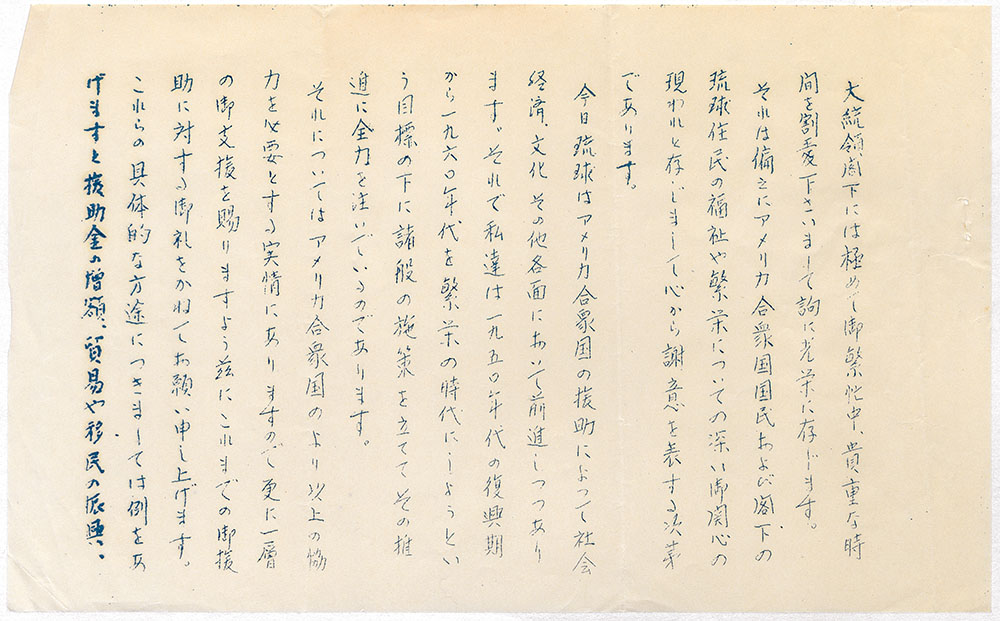 大統領閣下には極めて御繁忙中、貴重な時
間を割愛下さいまして誠に光栄に存じます。
それは偏えにアメリカ合衆国国民および閣下の
琉球住民の福祉や繁栄についての深い御関心の
現われと存じまして心から謝意を表する次第
であります。
今日琉球はアメリカ合衆国の援助によって社会
経済、文化その他各面において前進しつつあり
ます。それで私達は一九五〇年代の復興期
から一九六〇年代を繁栄の時代にしようとい
う目標の下に諸般の施策を立ててその推
進に全力を注いでいるのであります。
それについてはアメリカ合衆国のより以上の協
力を必要とする実情にありますので更に一層
の御支援を賜りますよう茲にこれまでの御援
助に対する御礼をかねてお願い申し上げます。
これらの具体的な方途につきましては例をあ
げますと援助金の増額、貿易や移民の振興、